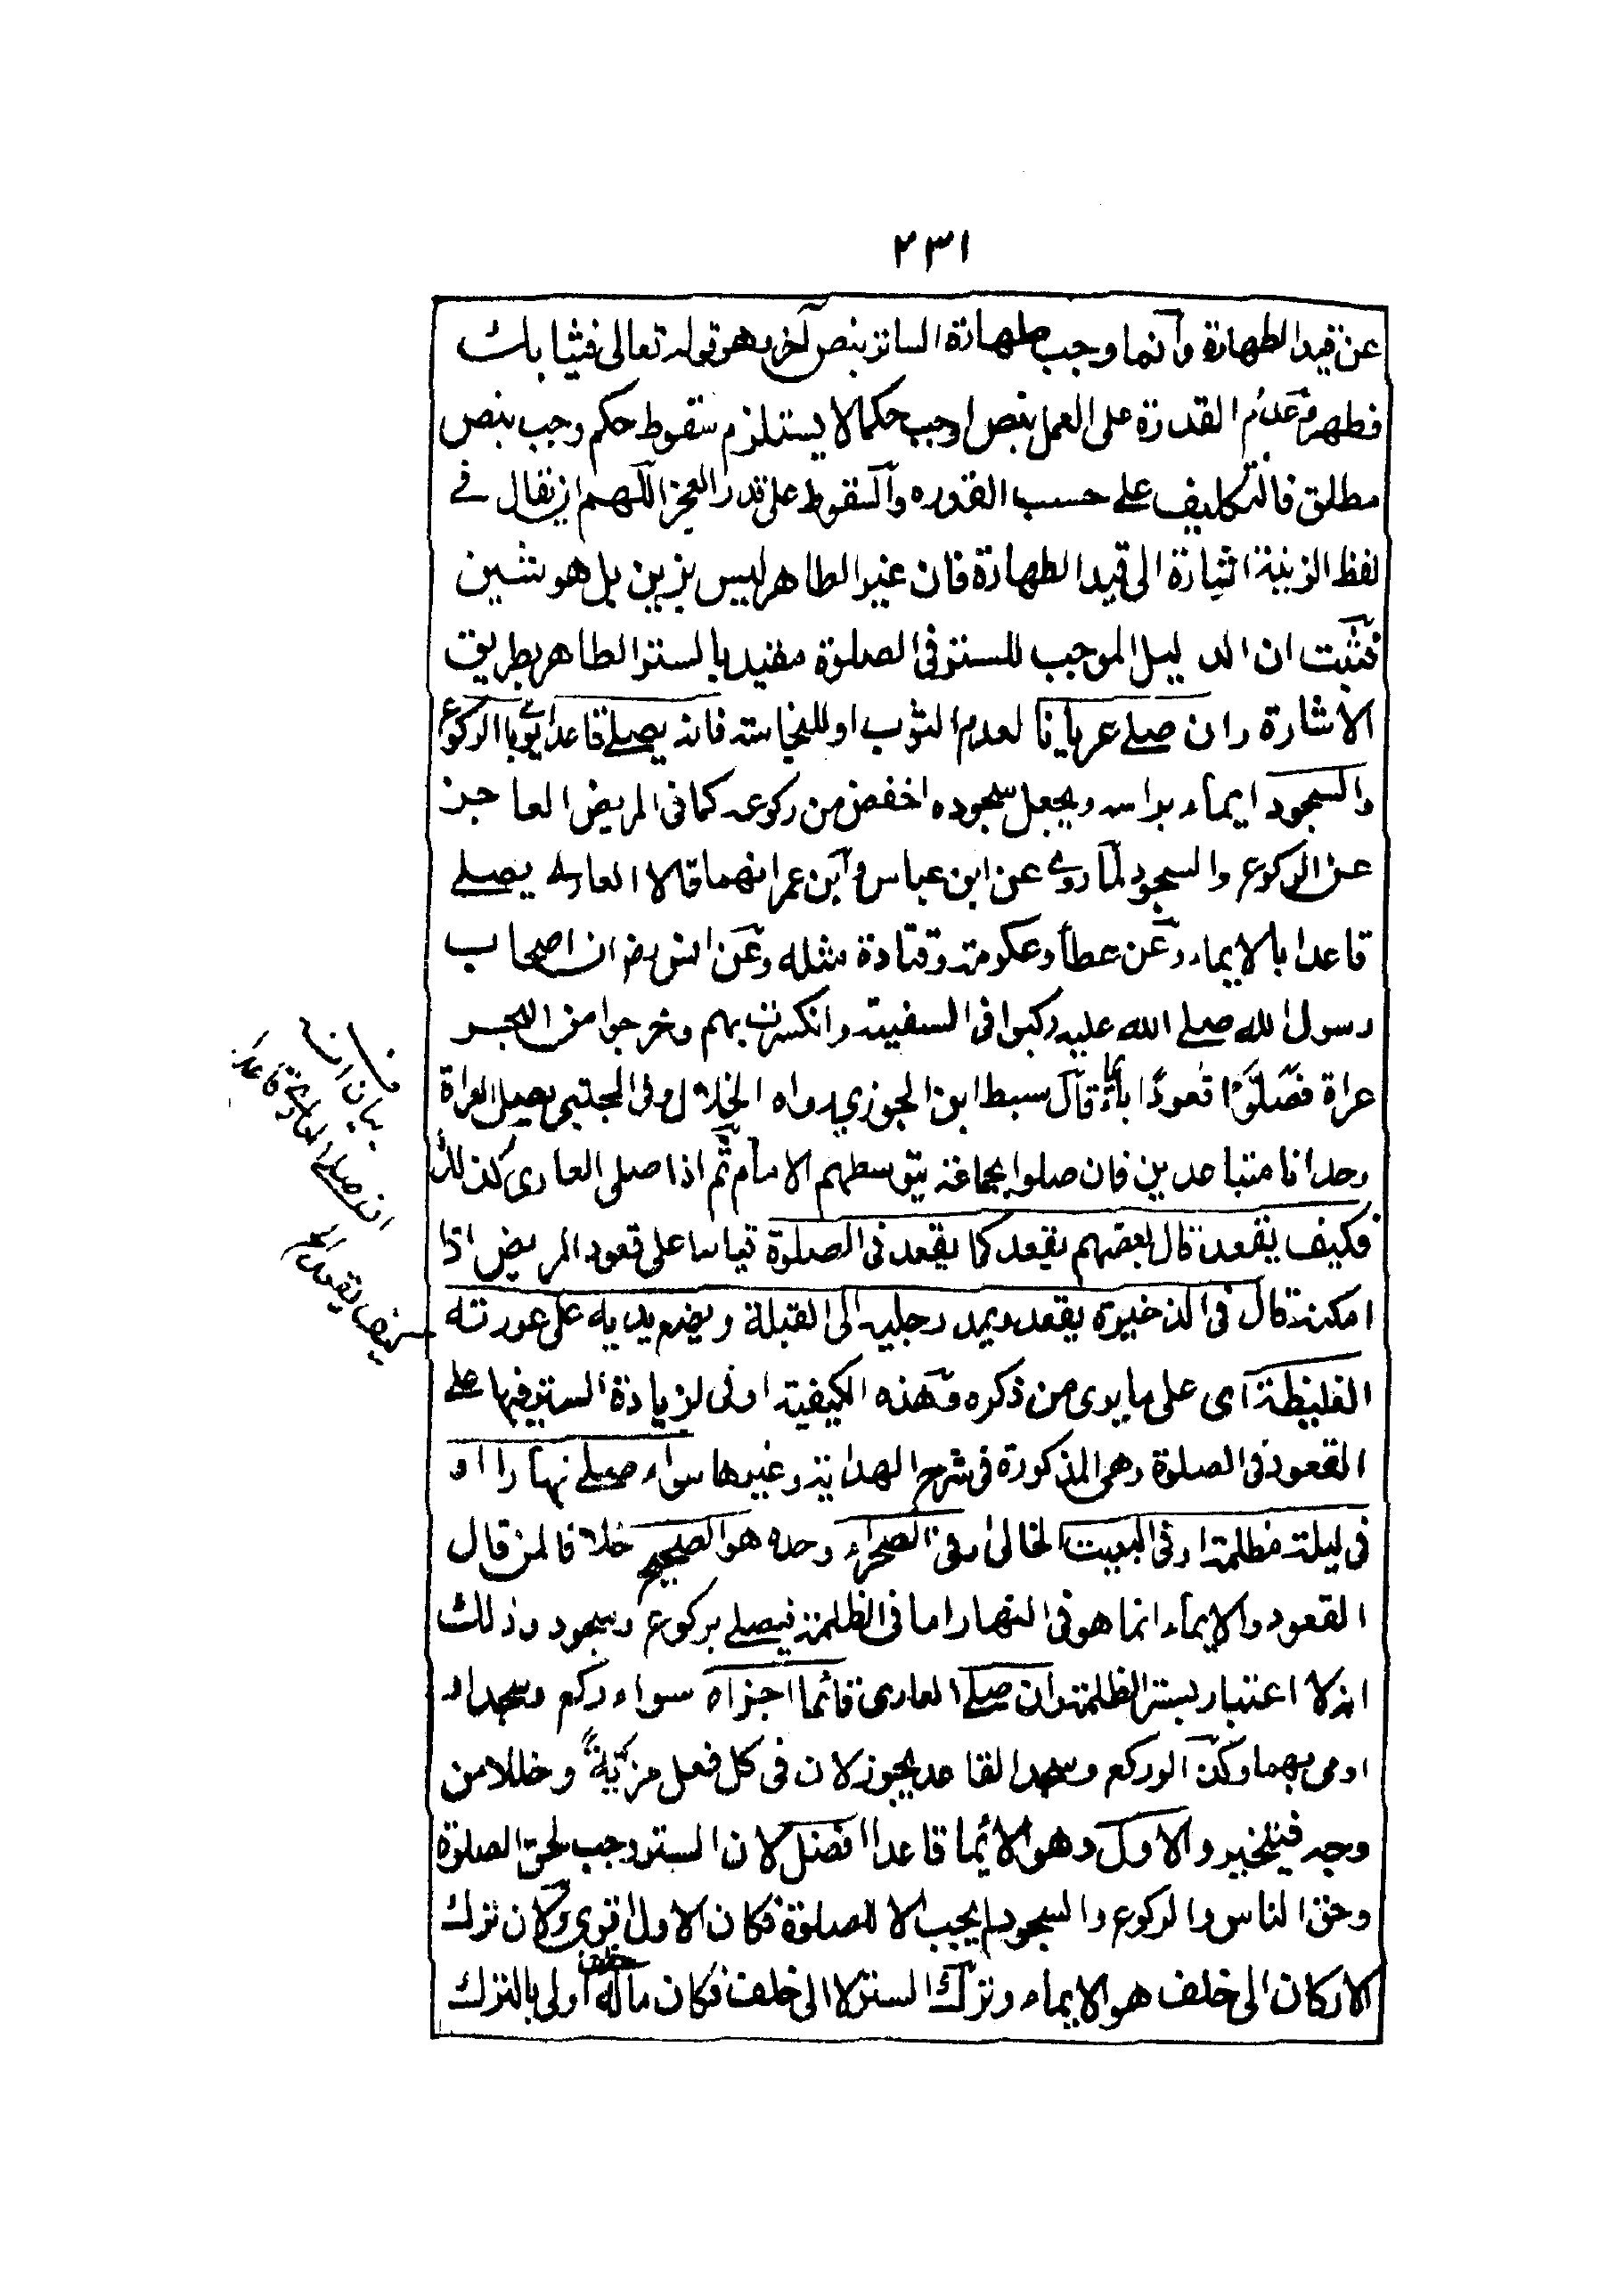 ٢٣١
عن قيد الطهارة وانما وجب طهارة الساتر بنص آخر وهو قوله تعالى فثيابك
فطهر وعدم القدرة على العمل بنص اوجب حكما لا يستلزم سقوط حكم وجب بنص
مطلق فالتكليف على حسب القدره والسقوط على قدر العجز اللهم ان يقال في
لفظ الزينة اشارة الى قيد الطهارة فان غير الطاهر ليس بزين بل هو شين
فثبت ان الدليل الموجب للستر في الصلوة مقيد بالستر الطاهر بطريق
الاشارة وان صلى عريانا لعدم الثوب او للنجاسة فانه يصلى قاعدا يومى بالركوع
والسجود ايماء براسه ويجعل سجوده اخفض من ركوعه كما في المريض العاجز
عن الركوع والسجود لما روى عن ابن عباس وابن عمر انهما قالا العارى يصلى
قاعدا بالايماء وعن عطاء وعكرمة وقتادة مثله وعن انس رض ان اصحاب
رسول الله صلى الله عليه ركبوا في السفينة وانكسرت بهم وخرجوا من البحر
عراة فصلوا قعودا بايماء قال سبط ابن الجوزي رواه الخلال وفي المجتبى يصلى العراة
وحدانا متباعدين فان صلوا بجماعة يتوسطهم الامام ثم اذا صلى العارى كذلك
فكيف يقعد قال بعضهم يقعد كما يقعد في الصلوة قياسا على قعود المريض اذا
امكنه قال في الذخيرة يقعد ويمد رجليه الى القبلة ويضع يديه على عورته
الغليظة اى على ما يرى من ذكره وهذه الكيفية اولى لزيادة الستر فيها على
القعود في الصلوة وهى المذكورة في شرح الهداية وغيرها سواء صلى نهارا او
في ليلة مظلمة او في البيت الخالى او في الصحراء وحده هو الصحيح خلافا لمن قال
القعود والايماء انما هو في النهار اما في الظلمة فيصلى بركوع وسجود وذلك
انه لا اعتبار بستر الظلمة وان صلى العارى قائما اجزاه سواء ركع وسجد او
اومى بهما وكذا لو ركع وسجد القاعد يجوز لان في كل فعل مزية وخللا من
وجه فيتخير والاول وهو الايما قاعدا افضل لان الستر وجب لحق الصلوة
وحق الناس والركوع والسجود لم يجب الا للصلوة فكان الاول اقوى ولان ترك
الاركان الى خلف هو الايماء وترك الستر لا الى خلف فكان ماله خلف اولى بالترك
بيان انه
ان صلى العارى قاعدا
كيف يقعد